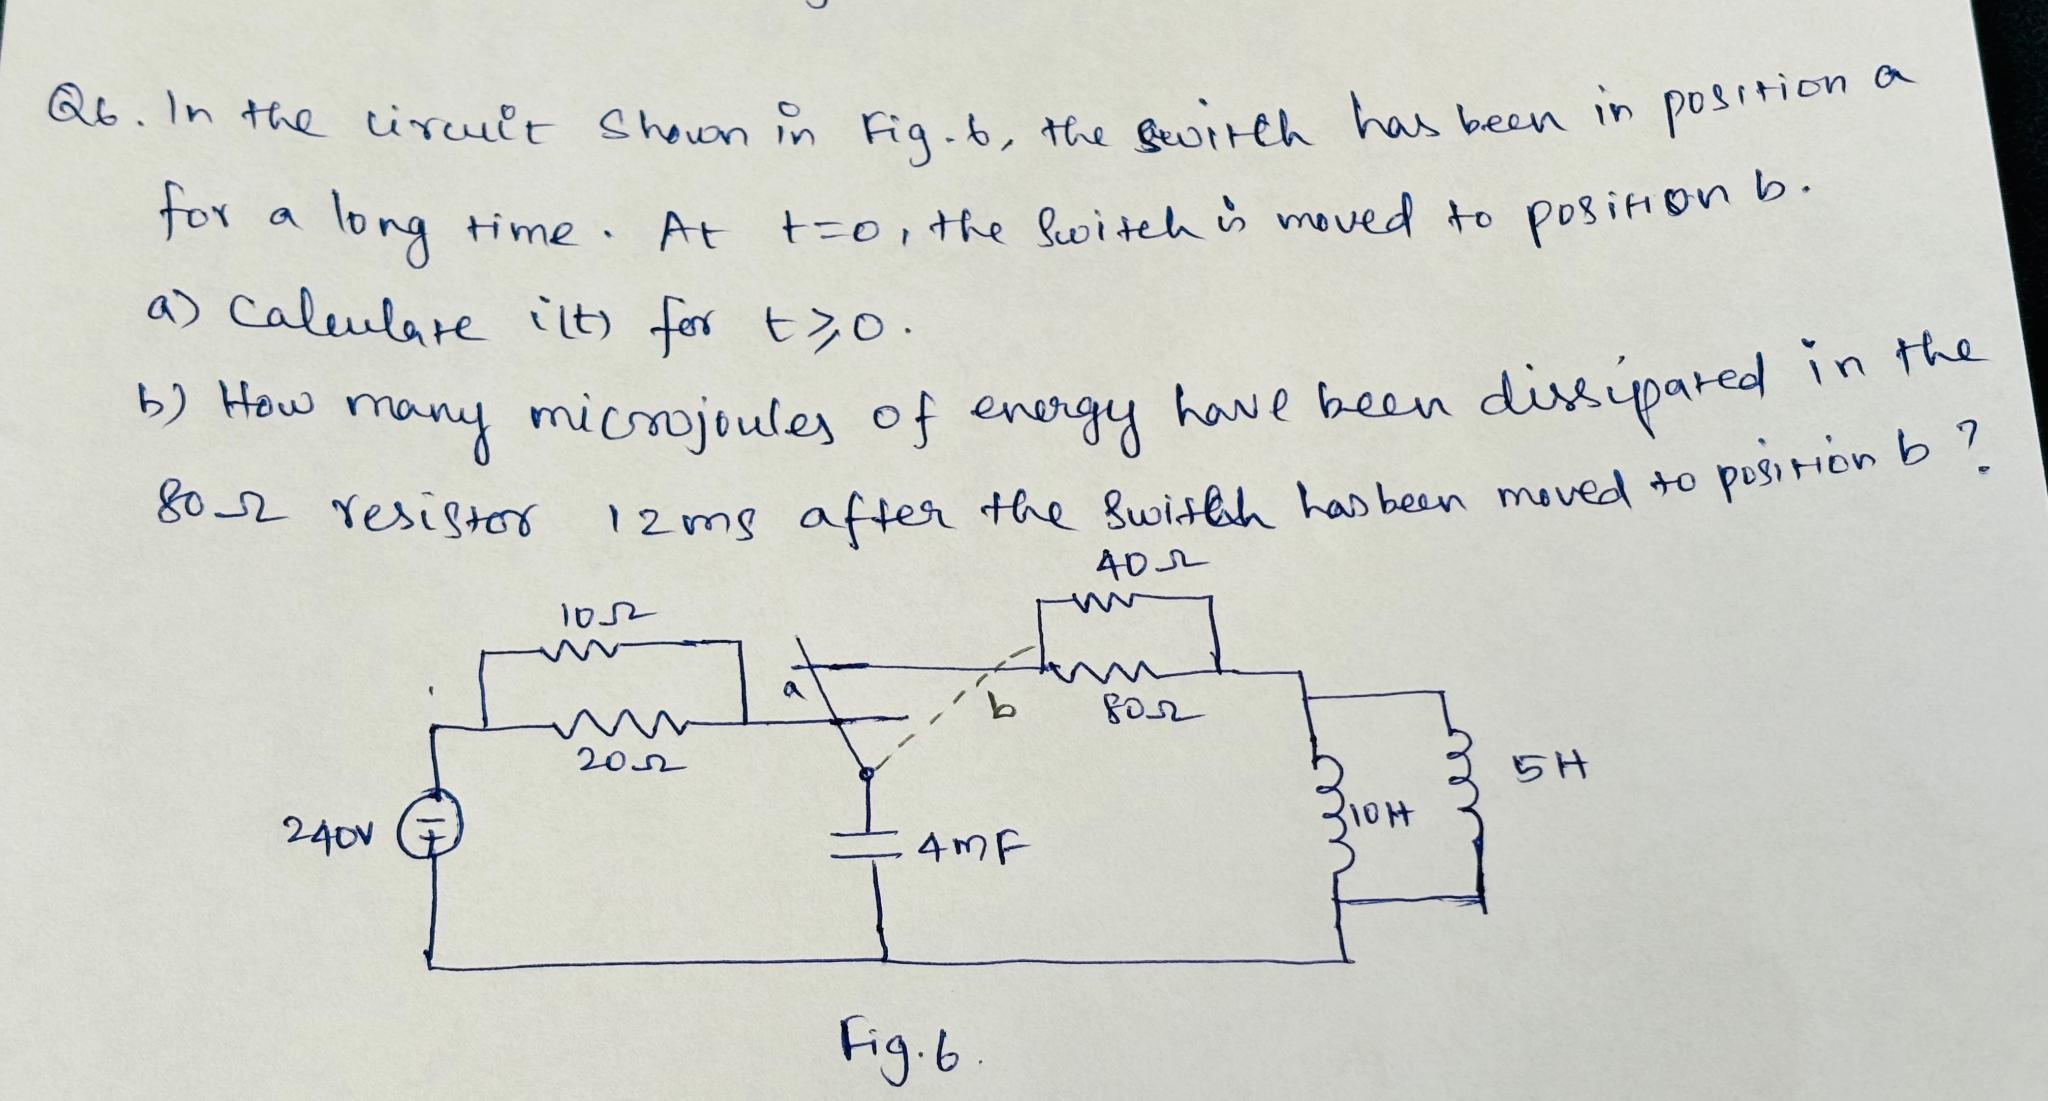 Q6. In the circuit shown in Fig. 6, the switch has been in position a
for a long time. At t=0, the switch is moved to position b.
a) Calculate i(t) for t≥0.
b) How many microjoules of energy have been dissipated in the
80Ω resistor 12ms after the switch has been moved to position b?
40Ω
10Ω
a
b
80Ω
20Ω
5H
10H
240V
4mF
Fig. 6.